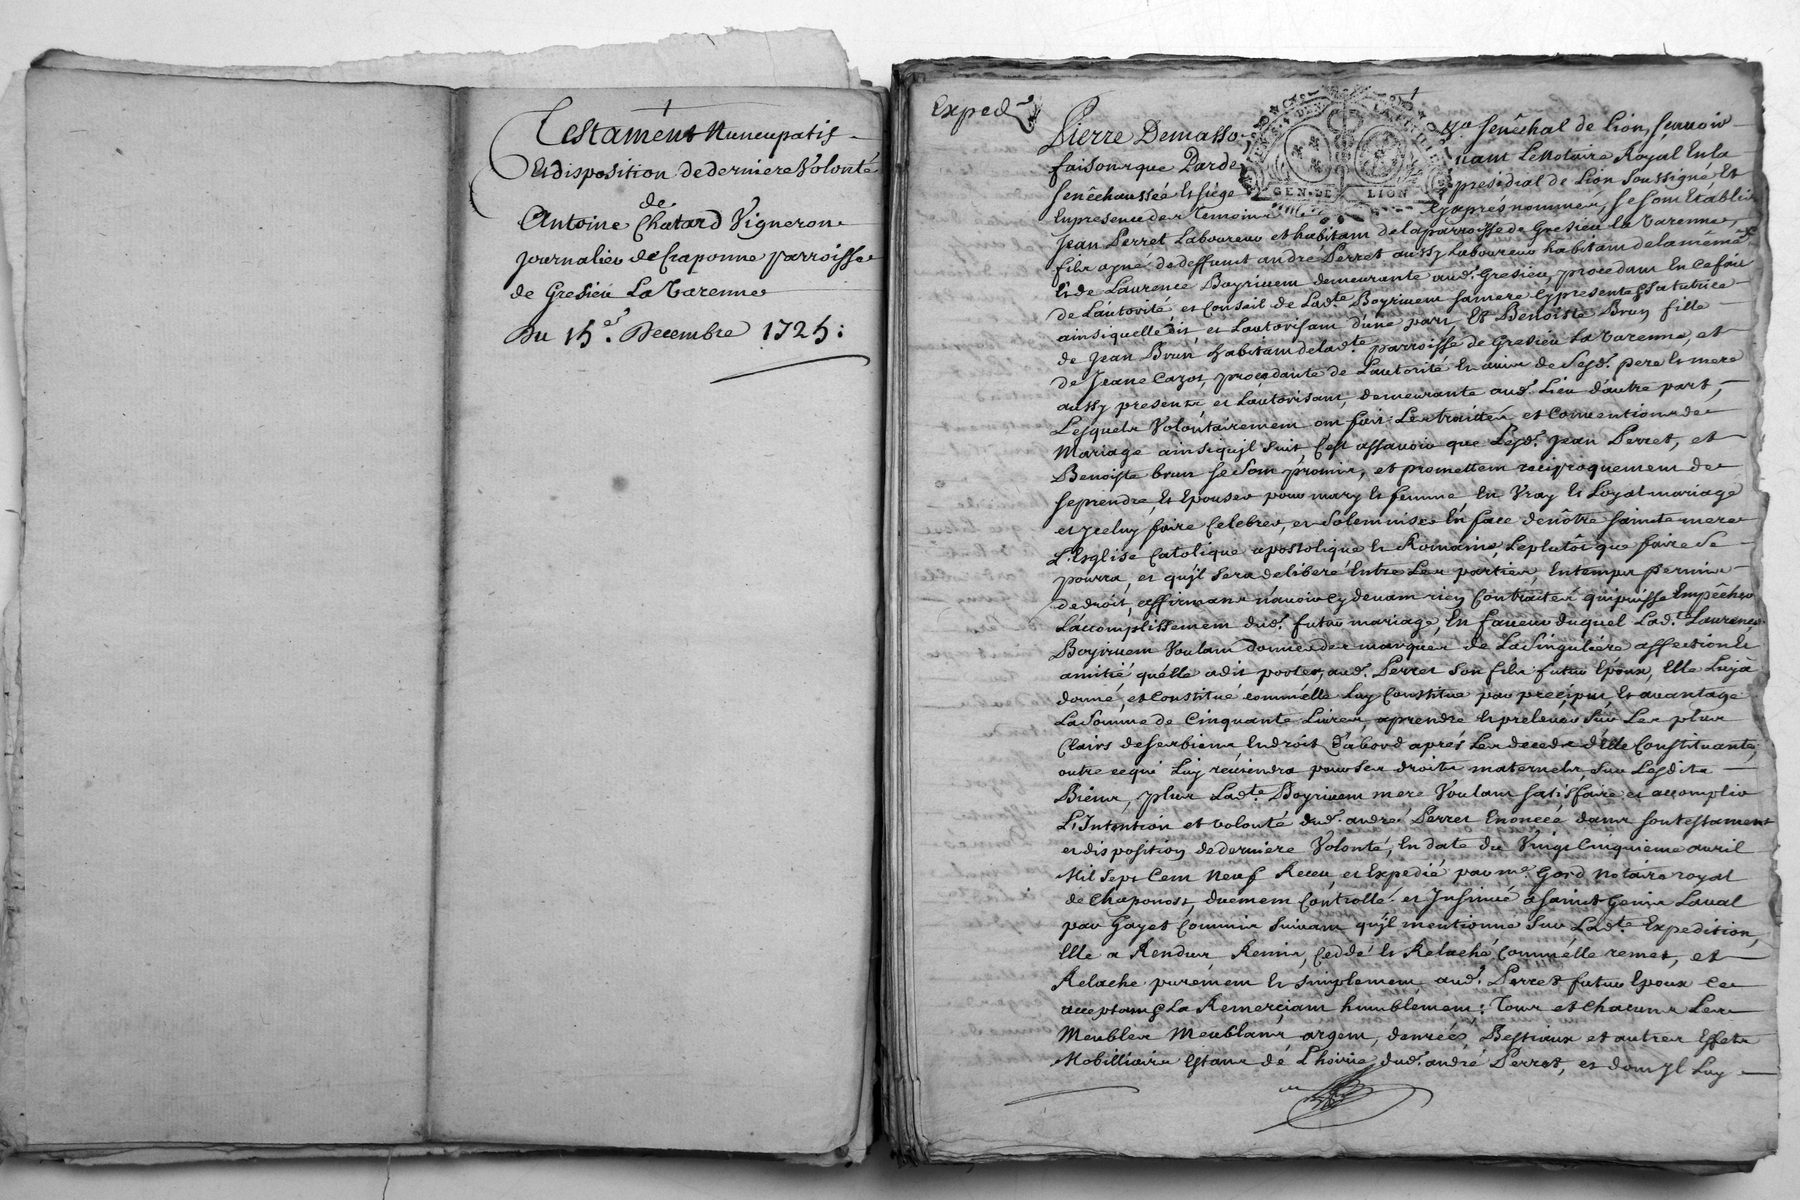 Testament Nuncupatif
Et disposition de derniere Volonté
de
Antoine Chatard Vigneron
journalier de Craponne parroisse
de Gresieu La Varenne
Du 15e. Decembre 1725:
Exped
Pierre Demasso Senêchal de Lion, sçavoir
faisons que Parde Le Notaire Royal En la
Senêchaussée et siége presidial de Lion soussigné Et
En presence des Temoins Cy aprés nommer, se som Etablis
Jean Perret Laboureur et habitam de la parroisse de Gresieu la Varenne,
fils ayné de deffunt andre Perret aussy Laboureur habitam de la méme
Et de Laurence Boyrivem demeurante aud. Gresieu, procedam En ce fait
de L'autorité et Conseil de Lad.te Boyrivem sa mere Cy presente, sa tutrice
ainsi quelle dit et L'autorisam d'une part, Et Benoiste Brun fille
de Jean Brun habitam de lad.te parroisse de Gresieu La Varenne, et
de Jeane Cazot, procedante de L'autorité Et avis de Sesd. pere Et mere
aussy presens et L'autorisant, demeurante aud. Lieu d'autre part,
Lesquels Volontairement om fait Les traittés et Conventions de
Mariage ainsi qu'jl suit, C'est assavoir que Lesd. Jean Perret, et
Benoiste brun se som promis, et promettem reciproquement de
se prendre, Et Epouser pour mary Et femme En Vray Et Loyal mariage
et jceluy faire Celebrer, et solemniser En face de nôtre sainte mere
L'Esglise Catolique apostolique Et Romaine, Le plutôt que faire se
pourra, et qu'jl sera deliberé Entre Les parties, En temps permis
de droit, affirmans n'avoir cy devam rien Contracter qui puisse Empêcher
L'accomplissement dud. futur mariage, En faveur duquel Lad.te Laurence
Boyrivem Voulam donner des marques de La singuliére affection Et
amitié qu'elle a dit porter, aud. Perret son fils futur Epoux, Elle Luy a
donné, et Constitué comm'elle Luy Constitue par preçiput, Et avantage
La somme de Cinquante Livres, a prendre Et prelever sur Les plus
Clairs de ses biens, En droit d'abord aprés Les deceds d'Elle Constituante,
outre ce qui Luy reviendra pour ses droits maternels, sur Lesdits
Biens, plus Lad.te Boyrivem mere Voulam satisfaire et accomplir
L'Intention et volonté dud. andré Perret Enoncée dans son testament
et disposition de derniere Volonté, En date du Vingt Cinquieme avril
Mil Sept Cem Neuf Receu et Expedié par me. Gord Notaire royal
de Chaponost, duemem Contrôllé et Jnsinué a saint Genis Laval
par Gayet Commis suivam qu'jl mentionne sur Lad.te Expedition,
Elle a Rendus Remis, Ceddé Et Relaché, Comm'elle remet, et
Relache purement Et simplement aud. Perret futur Epoux Ce
acceptant, & La Remerciam humblement: Tous et Chacuns Les
Meubles Meublans argem, denrées, Bestiaux et autres Effets
Mobilliaire Estans de L'hoirie dud. andré Perret, et dom jl Luy